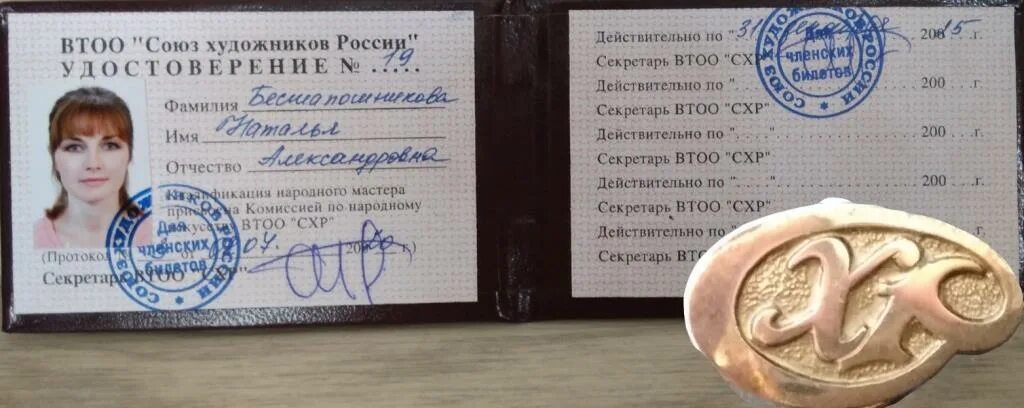 ВТОО "Союз художников России"
УДОСТОВЕРЕНИЕ № 19
Фамилия Бесшапошникова
Имя Наталья
Отчество Александровна
Квалификация народного мастера
присвоена Комиссией по народному
искусству ВТОО "СХР"
(Протокол от 07 200 г.)
Секретарь ВТОО "СХР"
СОЮЗ ХУДОЖНИКОВ РОССИИ
Для
членских
билетов
Действительно по "31 200 15 г.
Секретарь ВТОО "СХР"
Действительно по "....." 200 ....г.
Секретарь ВТОО "СХР"
Действительно по "....." 200 ....г.
Секретарь ВТОО "СХР"
Действительно по "....." 200 ....г.
Секретарь ВТОО "СХР"
Действительно по
Секретарь ВТО
СОЮЗ ХУДОЖНИКОВ РОССИИ
Для
членских
билетов